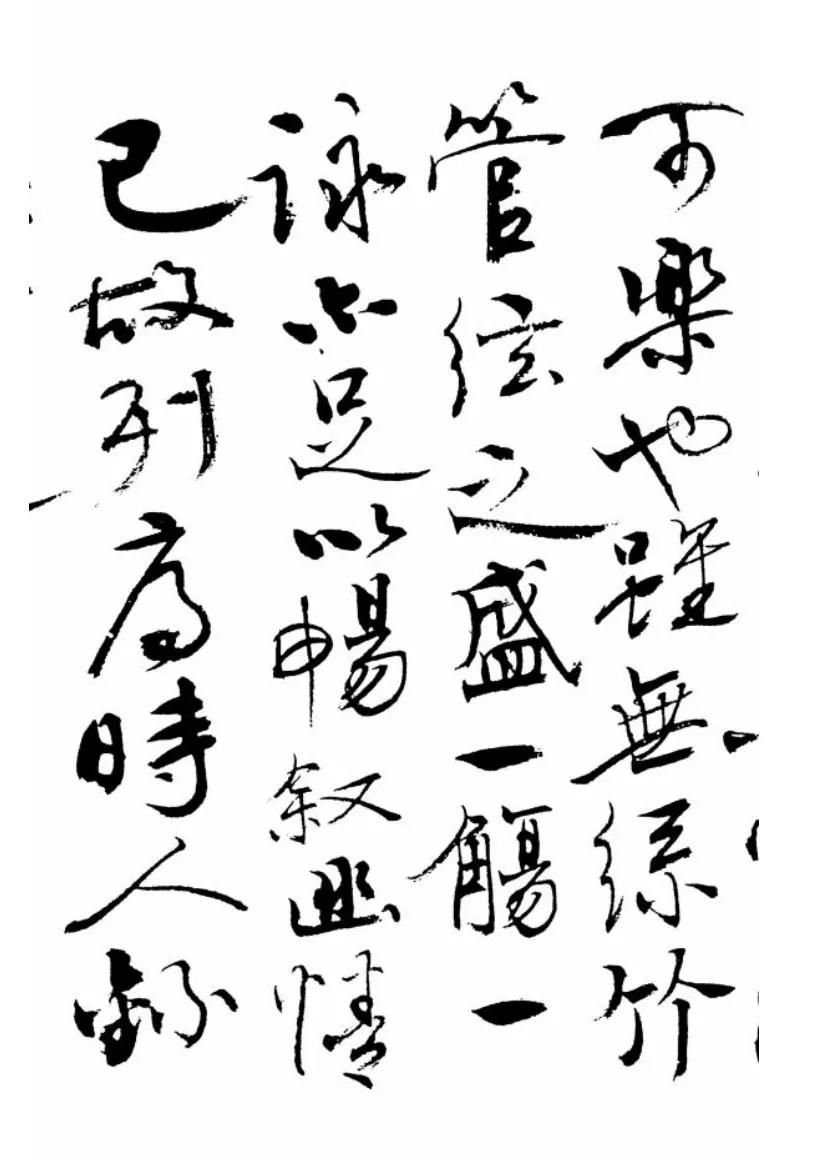 可樂也雖無絲竹
管弦之盛一觴一
詠亦足以暢叙幽情
已故列序時人錄